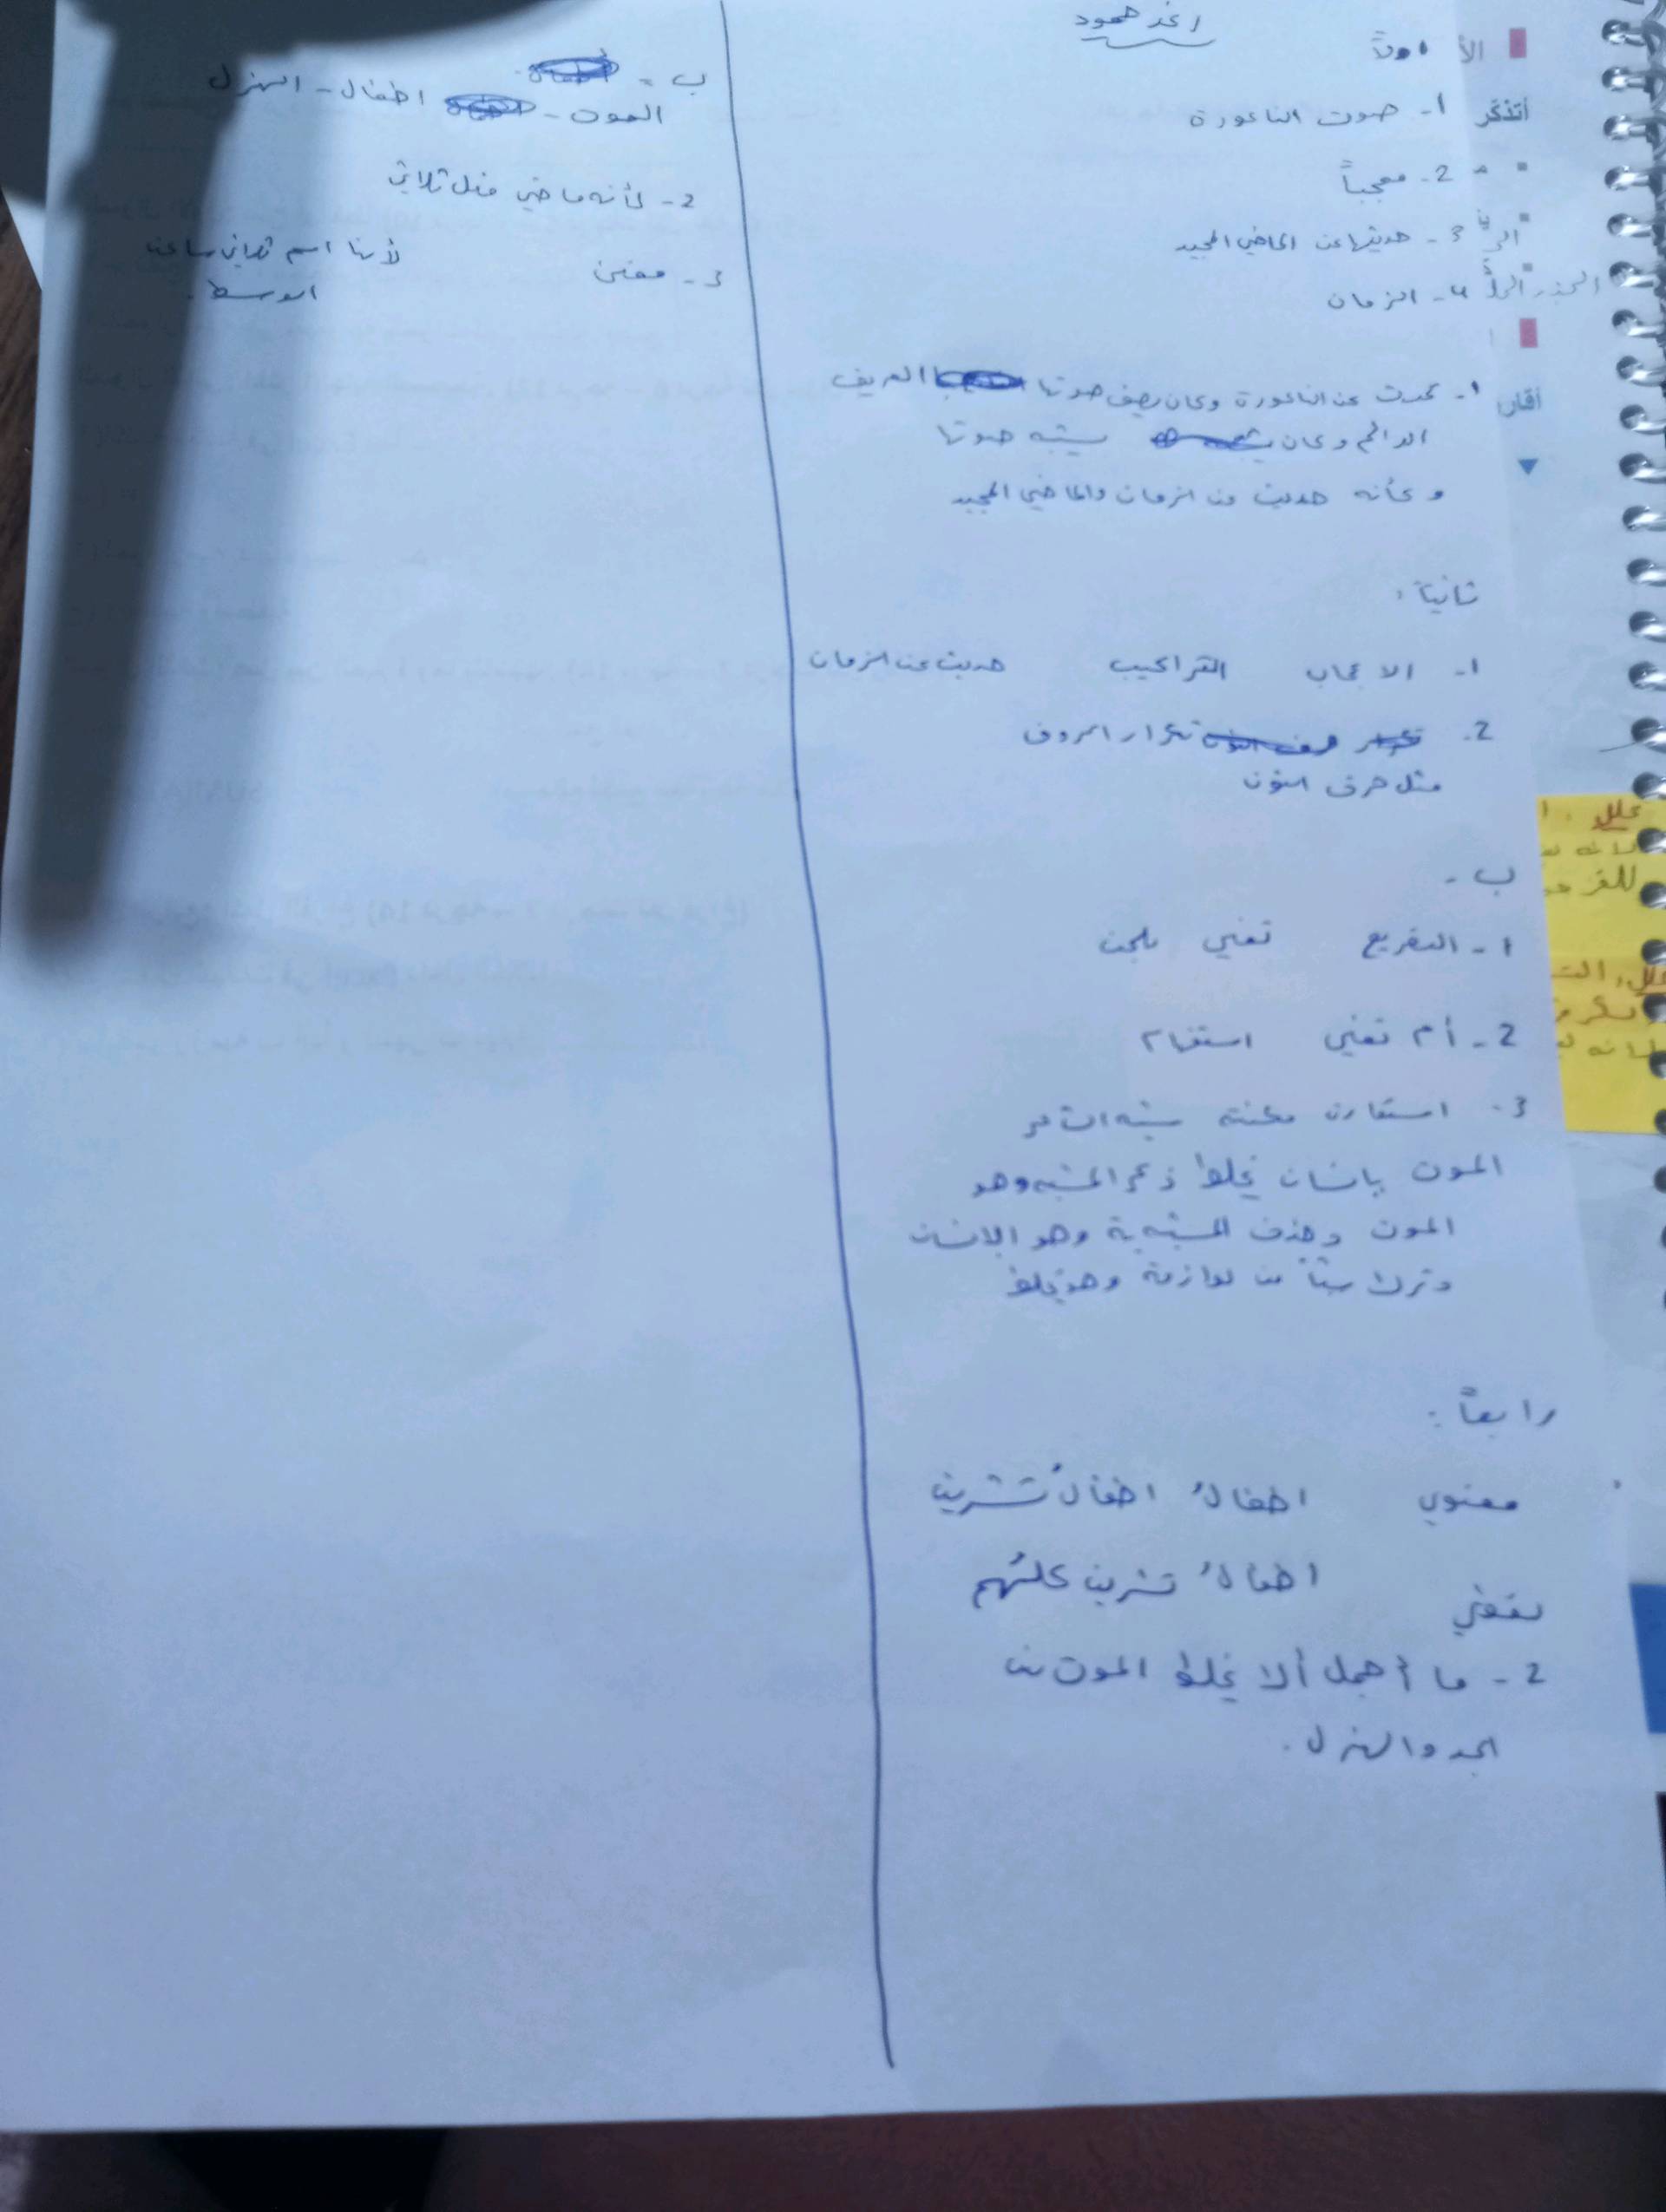 رغد حمود
اولاً
أتذكر
1- صوت الناعورة
2- معجباً
3- حديثها عن الماضي المجيد
4- الزمان
1- تحدث عن الناعورة وكان يصف صوتها العريف
الدائم وكان يشبه صوتها
وكأنه حديث من الزمان والماضي المجيد
ثانياً:
1- الاعجاب التراكيب حديث عن الزمان
2- تكرار الحروف
مثل حرف النون
ب -
1- التقريع تعني
2- أم تعني استفهام
3- استعارة مكنية شبه الشاعر
الموت بانسان يخلط ذكر المشبه وهو
الموت وحذف المشبه به وهو الانسان
وترك شيئاً من لوازمه وهو يخلط
رابعاً:
معنوي اطفالُ اطفالُ تشرين
لفظي اطفالُ تشرين كلُهم
2- ما أجمل ألا يخلط الموت بين
الجد والهزل.
ب -
الموت - اطفال - الهزل
2- لأنه ماضي مثل ثلاثي
3- مغنى لأنها اسم ثلاثي ساكن
الوسط.
علل
لأنه
علل